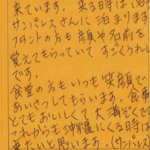 来ています。来る時は、い
サンパレスさんに泊ります
フロントの方も顔や名前を
覚えてもらっていてすごくうれし
です。
食堂の方もいつも笑顔で
あいさつしてもらいます。食事
とてもおいしくて大満足
これからも沖縄にくる時は
来たいと思います。(サンパレス